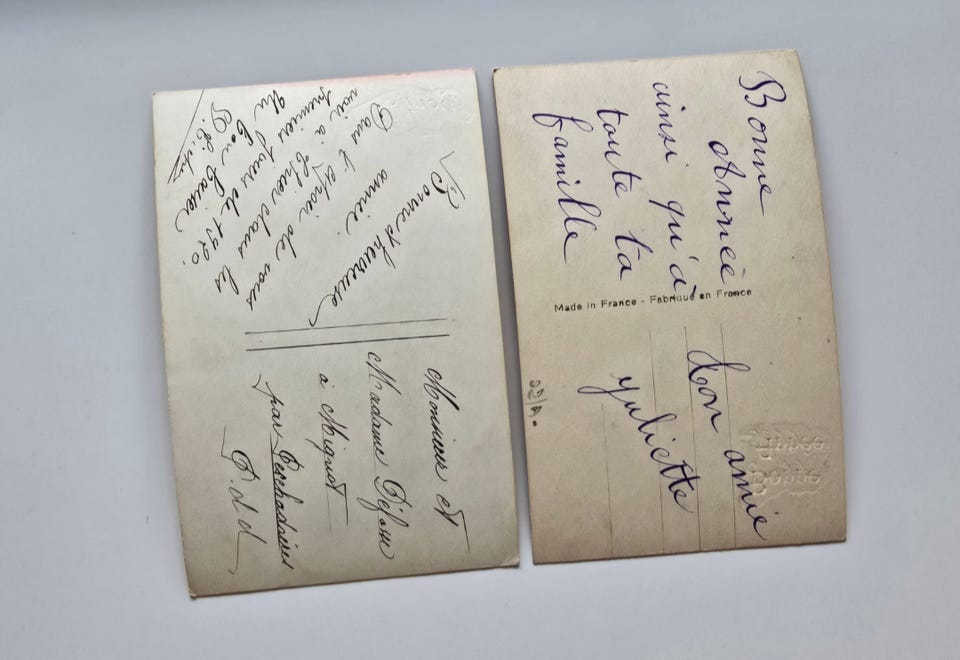 Bonne & heureuse
année.
Dans l'espoir de vous
voir à dans les
premiers jours de 1920.
Un bon baiser
Monsieur et
Madame
à Mignot
par Peschadoires
P. d d
Bonne
Année
ainsi qu'à
toute ta
famille
Made in France - Fabriqué en France
Ton amie
yuliette
Bonne
Année